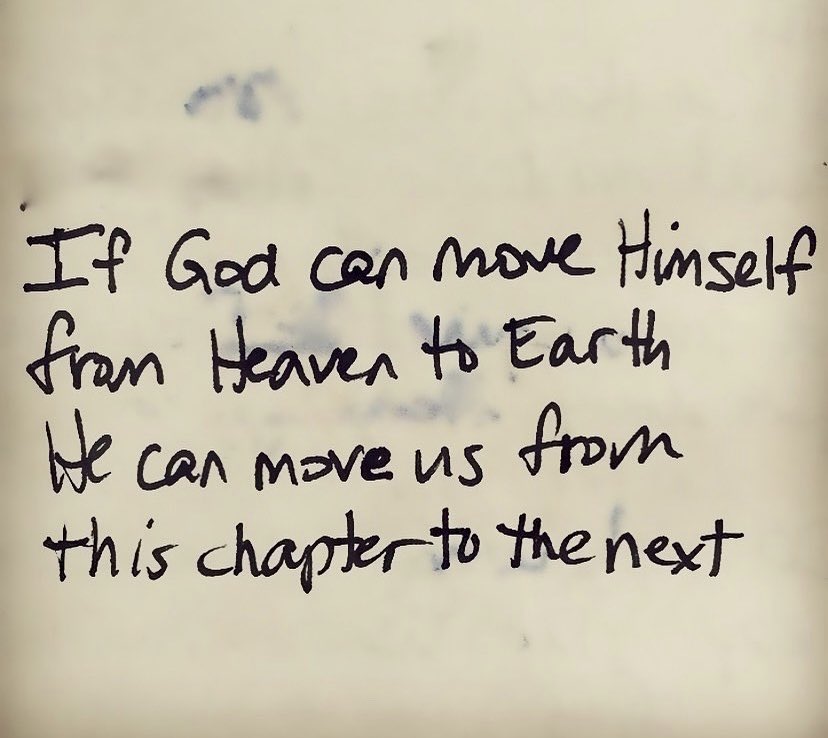 If God can move Himself
from Heaven to Earth
He can move us from
this chapter to the next